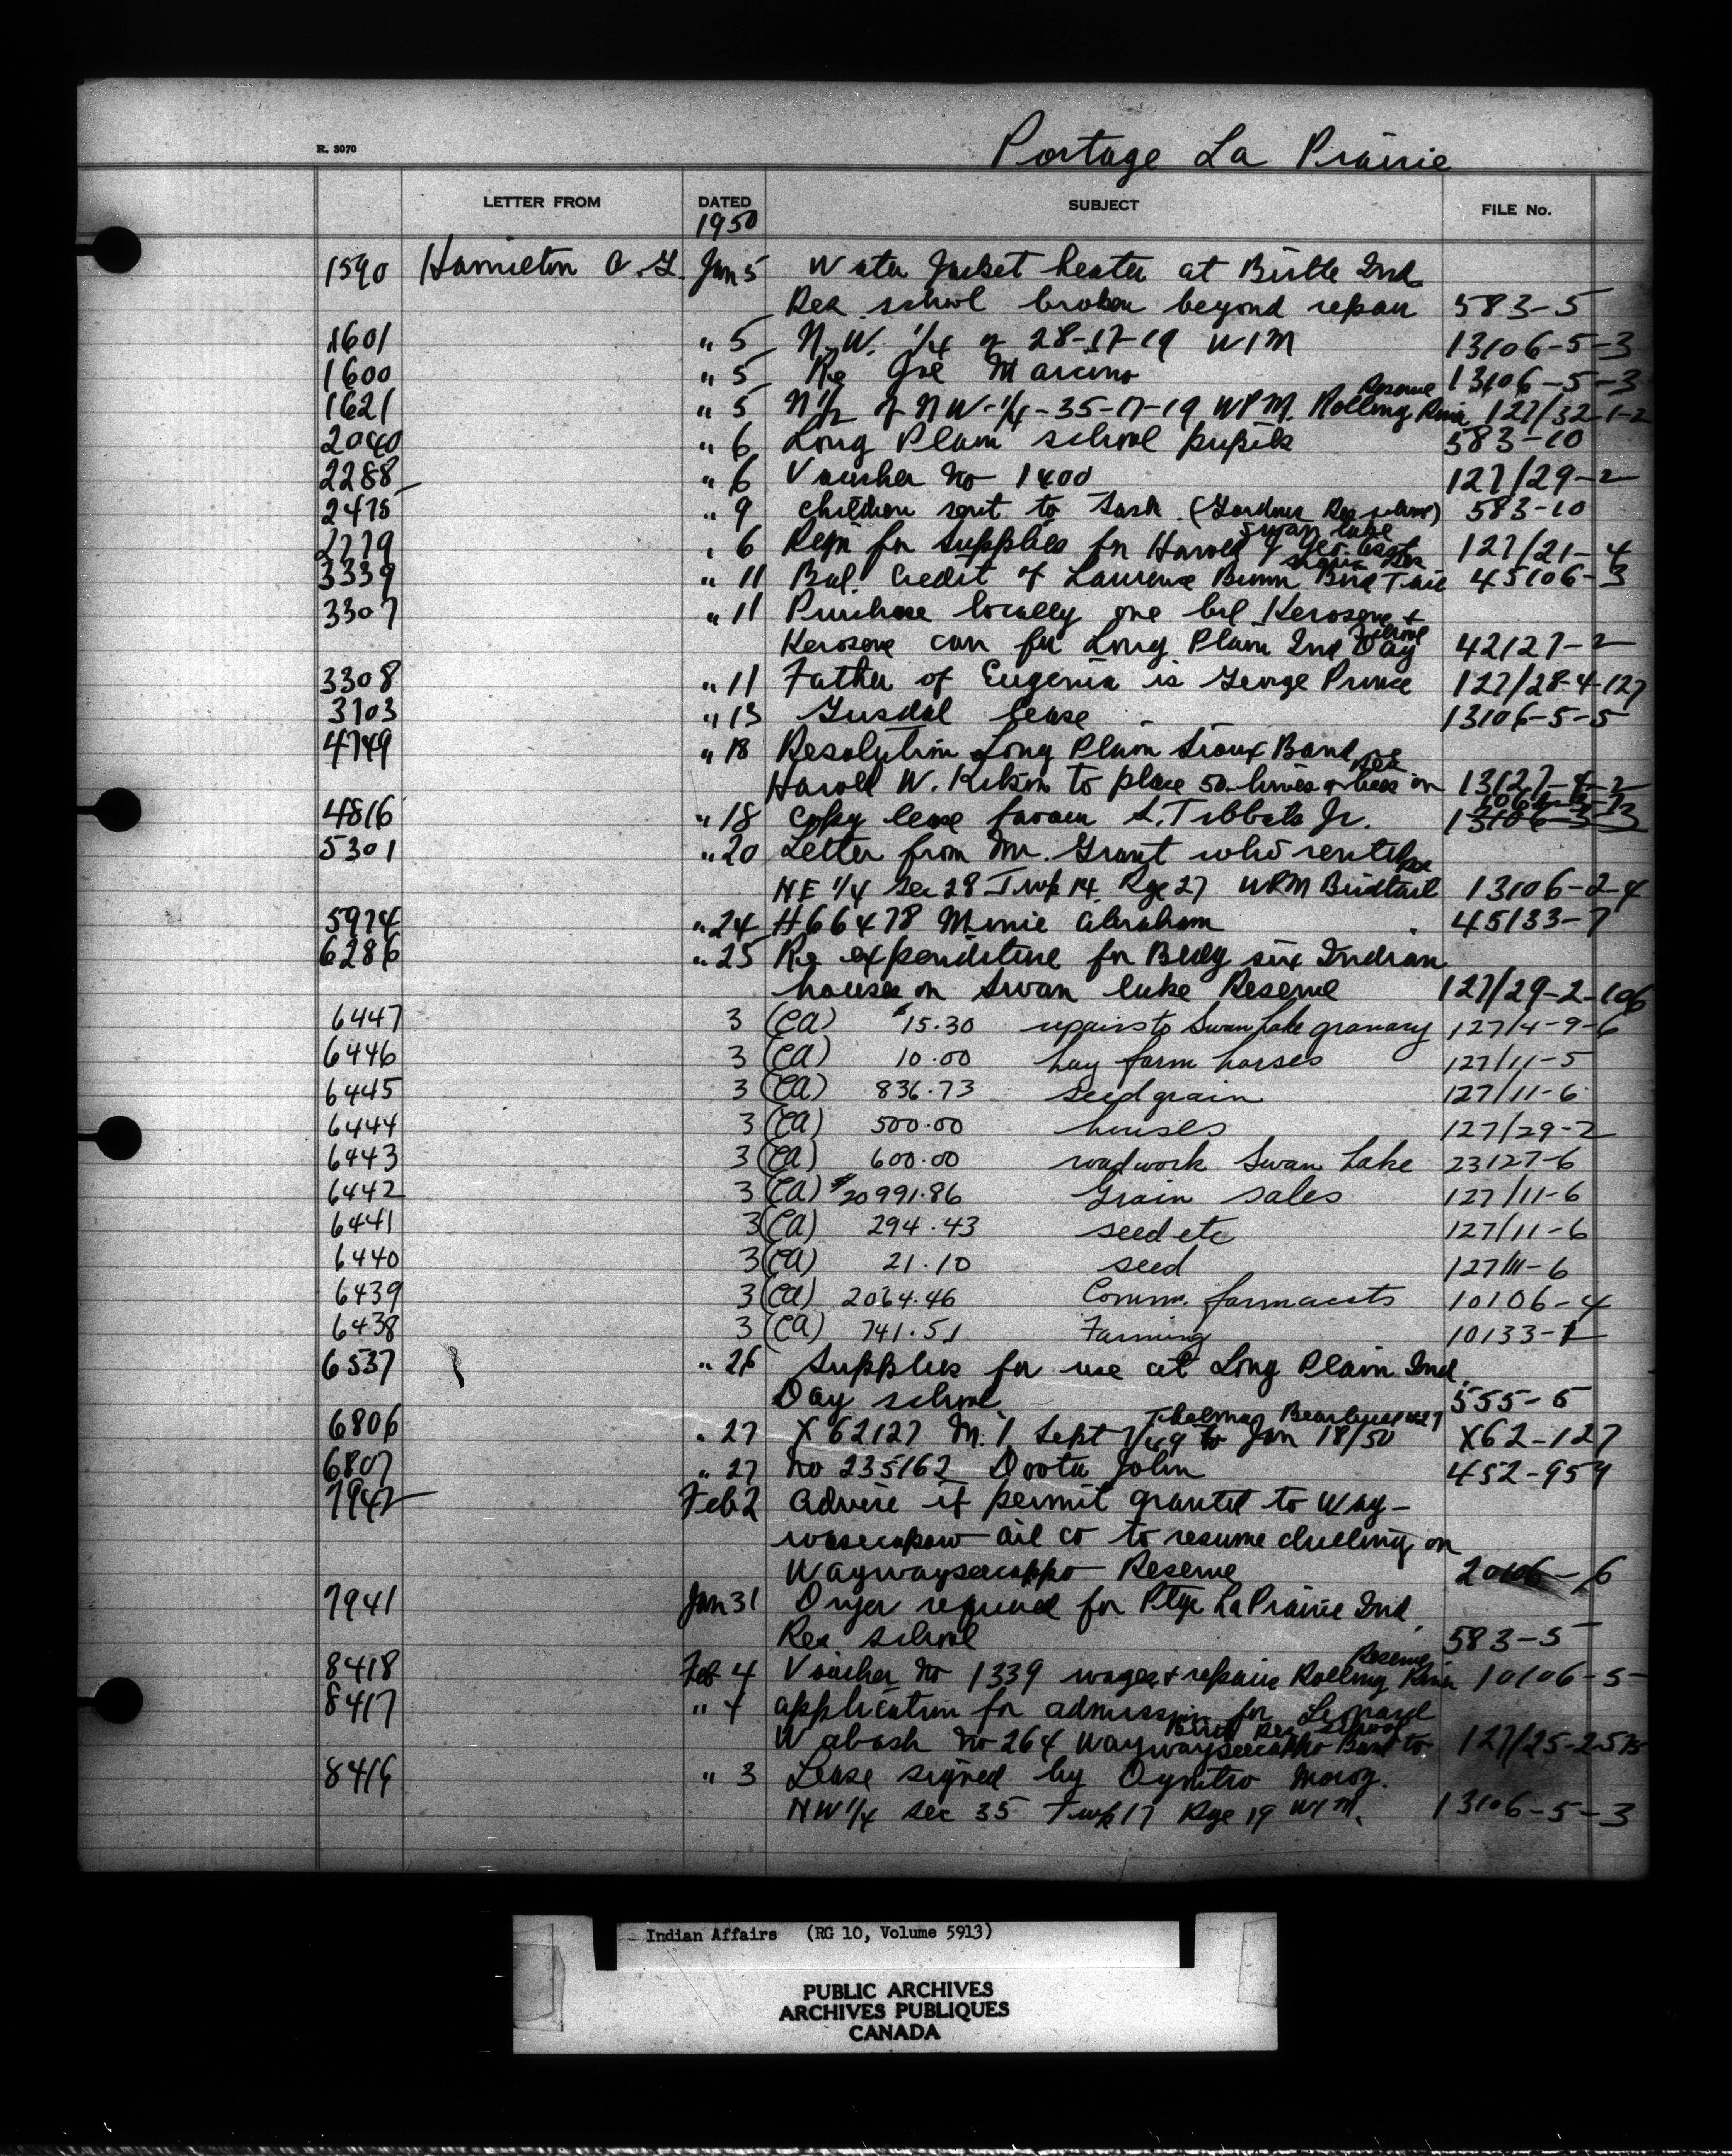 R. 3070
Portage La Prairie
LETTER FROM DATED SUBJECT FILE No.
1950
1590 Hamilton A. G. Jan 5 Water Jacket heater at Birtle Ind
Res. school broken beyond repair 583-5
1601 " 5 N.W. 1/4 of 28-17-19 W1M 13106-5-3
1600 " 5 Re Joe 13106-5-3
1621 " 5 N 1/2 of NW-1/4-35-17-19 WPM. Rolling River Reserve 127/32-1-2
2040 " 6 Long Plain school pupils 583-10
2288 " 6 Voucher No 1400 127/29-2
2475 " 9 Children sent to Sask. (Gordons Res school) 583-10
2779 " 6 Reqn for Supplies for Harold & Geo. Swan Lake 127/21-4
3339 " 11 Bal. Credit of Laurence Bunn Bird Tail Sioux 45106-3
3307 " 11 Purchase locally one brl Kerosene +
Kerosene can for Long Plain Ind Day School 42127-2
3308 " 11 Father of Eugenia is George Prince 127/28-4-127
3703 " 13 Gusdal lease 13106-5-5
4749 " 18 Resolution Long Plain Sioux Band
Harold W. to place 50 hives of bees on Res 13127-4-2
4816 " 18 Copy lease favour S. Tibbats Jr.
5301 " 20 Letter from Mr. Grant who rented
NE 1/4 Sec 28 Twp 14 Rge 27 WPM Birdtail Res 13106-2-4
5974 " 24 H66478 Minnie Abraham 45133-7
6286 " 25 Re expenditure for Bldg six Indian
houses on Swan Lake Reserve 127/29-2-106
6447 3 (CA) $15.30 repairs to Swan Lake granary 127/4-9-6
6446 3 (CA) 10.00 hay farm horses 127/11-5
6445 3 (CA) 836.73 seed grain 127/11-6
6444 3 (CA) 500.00 houses 127/29-2
6443 3 (CA) 600.00 road work Swan Lake 23127-6
6442 3 (CA) $20991.86 Grain sales 127/11-6
6441 3 (CA) 294.43 seed etc 127/11-6
6440 3 (CA) 21.10 seed 127/11-6
6439 3 (CA) 2064.46 Comm. farm accts 10106-4
6438 3 (CA) 741.51 Farming 10133-1
6537 " 26 Supplies for use at Long Plain Ind.
Day school. 555-5
6806 " 27 X62127 M. 1 Sept 1/49 to Jan 18/50 Thelma X62-127
6807 " 27 No 235162 Doota John 452-959
7942 Feb 2 Advise if permit granted to Way-
wasecapow Oil Co to resume drilling on
Waywayseecappo Reserve 20106-6
7941 Jan 31 Dryer required for Ptge La Prairie Ind.
Res school 583-5
8418 Feb 4 Voucher No 1339 wages + repairs Rolling River Reserve 10106-5
8417 " 4 application for admission for Leonard
Wabash No 264 Waywayseecappo Band to Birtle Res. school 127/25-2-575
8416 " 3 Lease signed by Dymtro Moroz.
NW 1/4 Sec 35 Twp 17 Rge 19 W1M. 13106-5-3
Indian Affairs (RG 10, Volume 5913)
PUBLIC ARCHIVES
ARCHIVES PUBLIQUES
CANADA